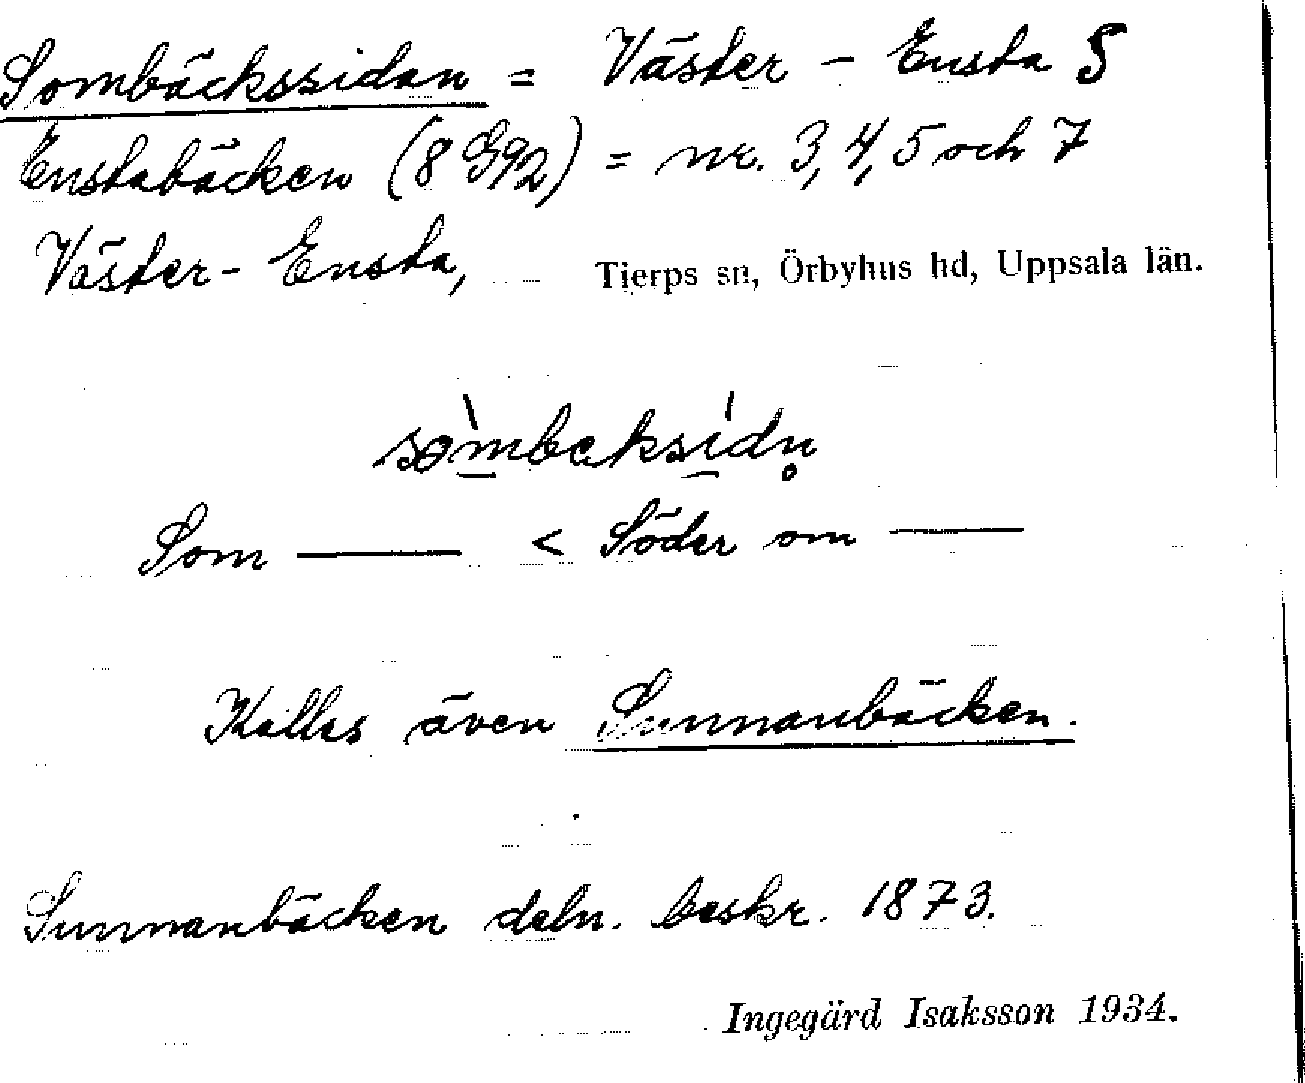 Sombäckssidan = Väster - Ensta S
Enstabäcken (8 G92) = nr. 3, 4, 5 och 7
Väster - Ensta, Tierps sn, Örbyhus hd, Uppsala län.
Som —— < Söder om ——
Kallas även Sunnanbäcken.
Sunnanbäcken deln. beskr. 1873.
Ingegärd Isaksson 1934.